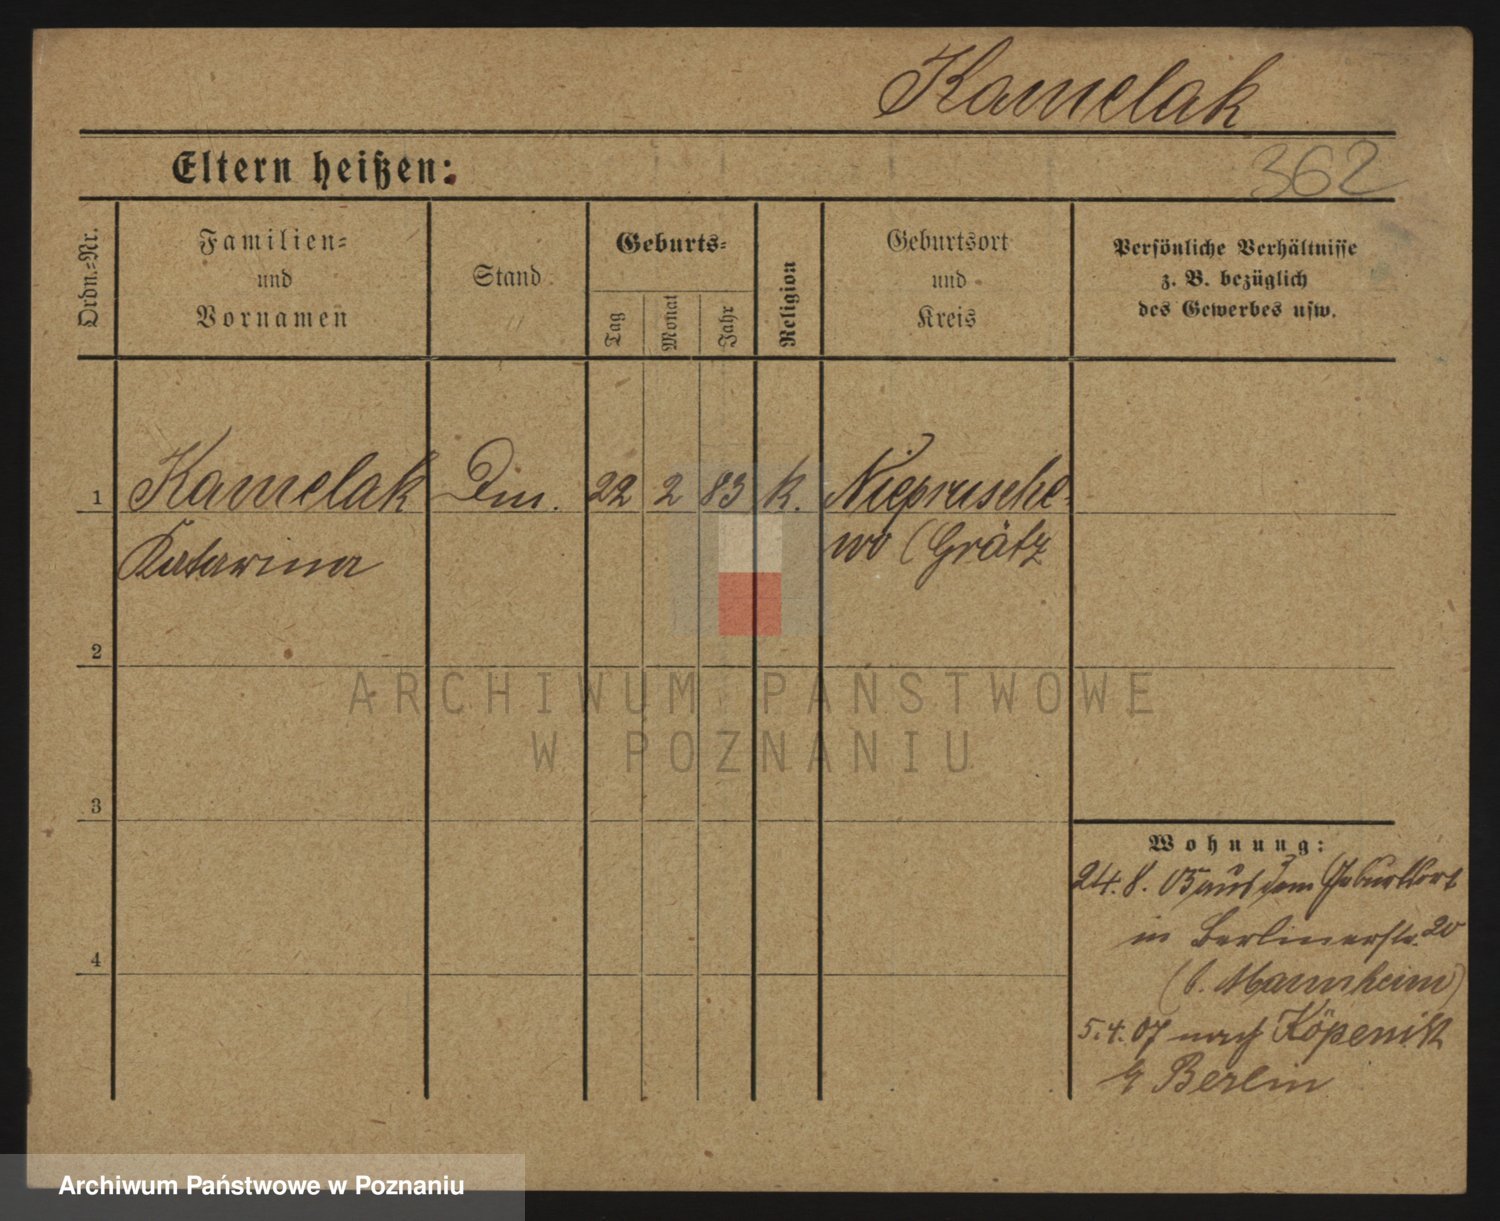 Kamelak
Eltern heißen:
362
Ordn.-Nr.
Familien-
und
Vornamen
Stand
Geburts-
Tag
Monat
Jahr
Religion
Geburtsort
und
Kreis
Persönliche Verhältnisse
z. B. bezüglich
des Gewerbes usw.
1 Kamelak 22 2 83 k. Niepruschewo
Katarina (Grätz
2
3
4
ARCHIWUM PAŃSTWOWE
W POZNANIU
Wohnung:
24. 8. 05 aus dem Geburtsort
in Berlinerstr. 20
(b. Mannheim)
5.4.07 nach Köpenik
Berlin
Archiwum Państwowe w Poznaniu